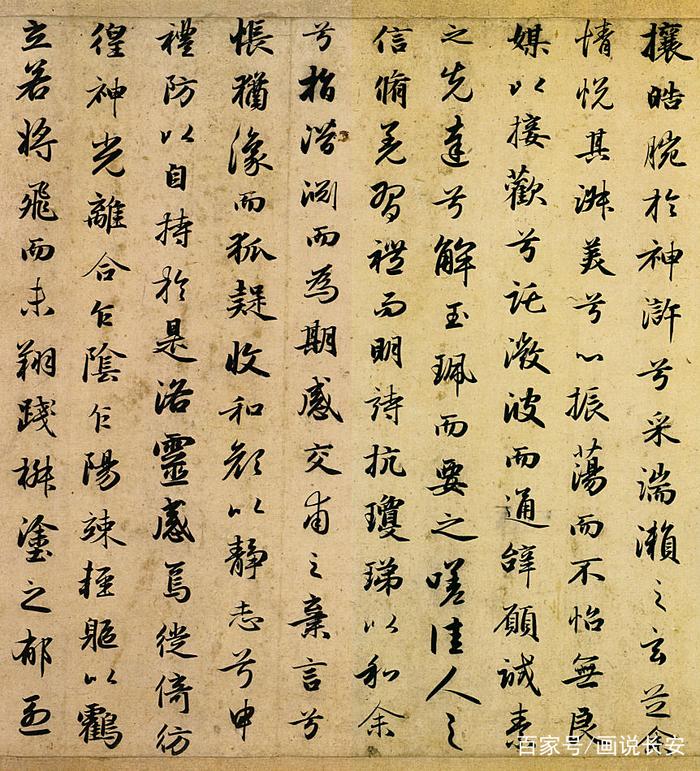 攘皓腕於神滸兮采湍瀨之玄芝余
情悅其淑美兮心振蕩而不怡無良
媒以接歡兮託微波而通辭願誠素
之先達兮解玉珮而要之嗟佳人之
信脩羌習禮而明詩抗瓊珶以和余
兮指潛淵而為期感交甫之棄言兮
悵猶豫而狐疑收和顏以靜志兮申
禮防以自持於是洛靈感焉徙倚彷
徨神光離合乍陰乍陽竦輕軀以鶴
立若將飛而未翔踐椒塗之郁烈
百家号/画说长安